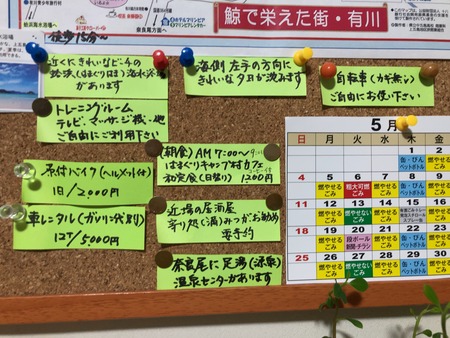 鯨で栄えた街・有川
徒歩15分〜
近くにきれいなビーチの
蛤浜(はまぐりはま)海水浴場
があります
海側 左手の方向に
きれいな夕日が沈みます
自転車(カギ無し)
ご自由にお使い下さい
トレーニングルーム
テレビ、マッサージ機・他
ご自由にご利用下さい
原付バイク(ヘルメット付)
1日/2000円
(朝食)AM 7:00〜9:00
はまぐりキャンプ村カフェ
和定食(日替り) 1200円
車レンタル(ガソリン代別り)
12H/5000円
近場の居酒屋
寄り処(満)みつがお勧め
要予約
奈良尾に足湯(源泉)
温泉センターがあります
5月
日 月 火 水 木 金
1 2
缶・びん ペットボトル 燃やせるごみ
4 5 6 7 8 9
燃やせるごみ 粗大可燃ごみ 燃やせるごみ 缶・びん ペットボトル 燃やせるごみ
11 12 13 14 15 16
燃やせるごみ 燃やせないごみ 燃やせるごみ 燃やせるごみ
18 19 20 21 22 23
燃やせるごみ 段ボール 新聞・チラシ 燃やせるごみ 缶・びん ペットボトル 燃やせるごみ
25 26 27 28 29 30
燃やせるごみ 燃やせないごみ 燃やせるごみ 缶・びん ペットボトル 燃やせるごみ